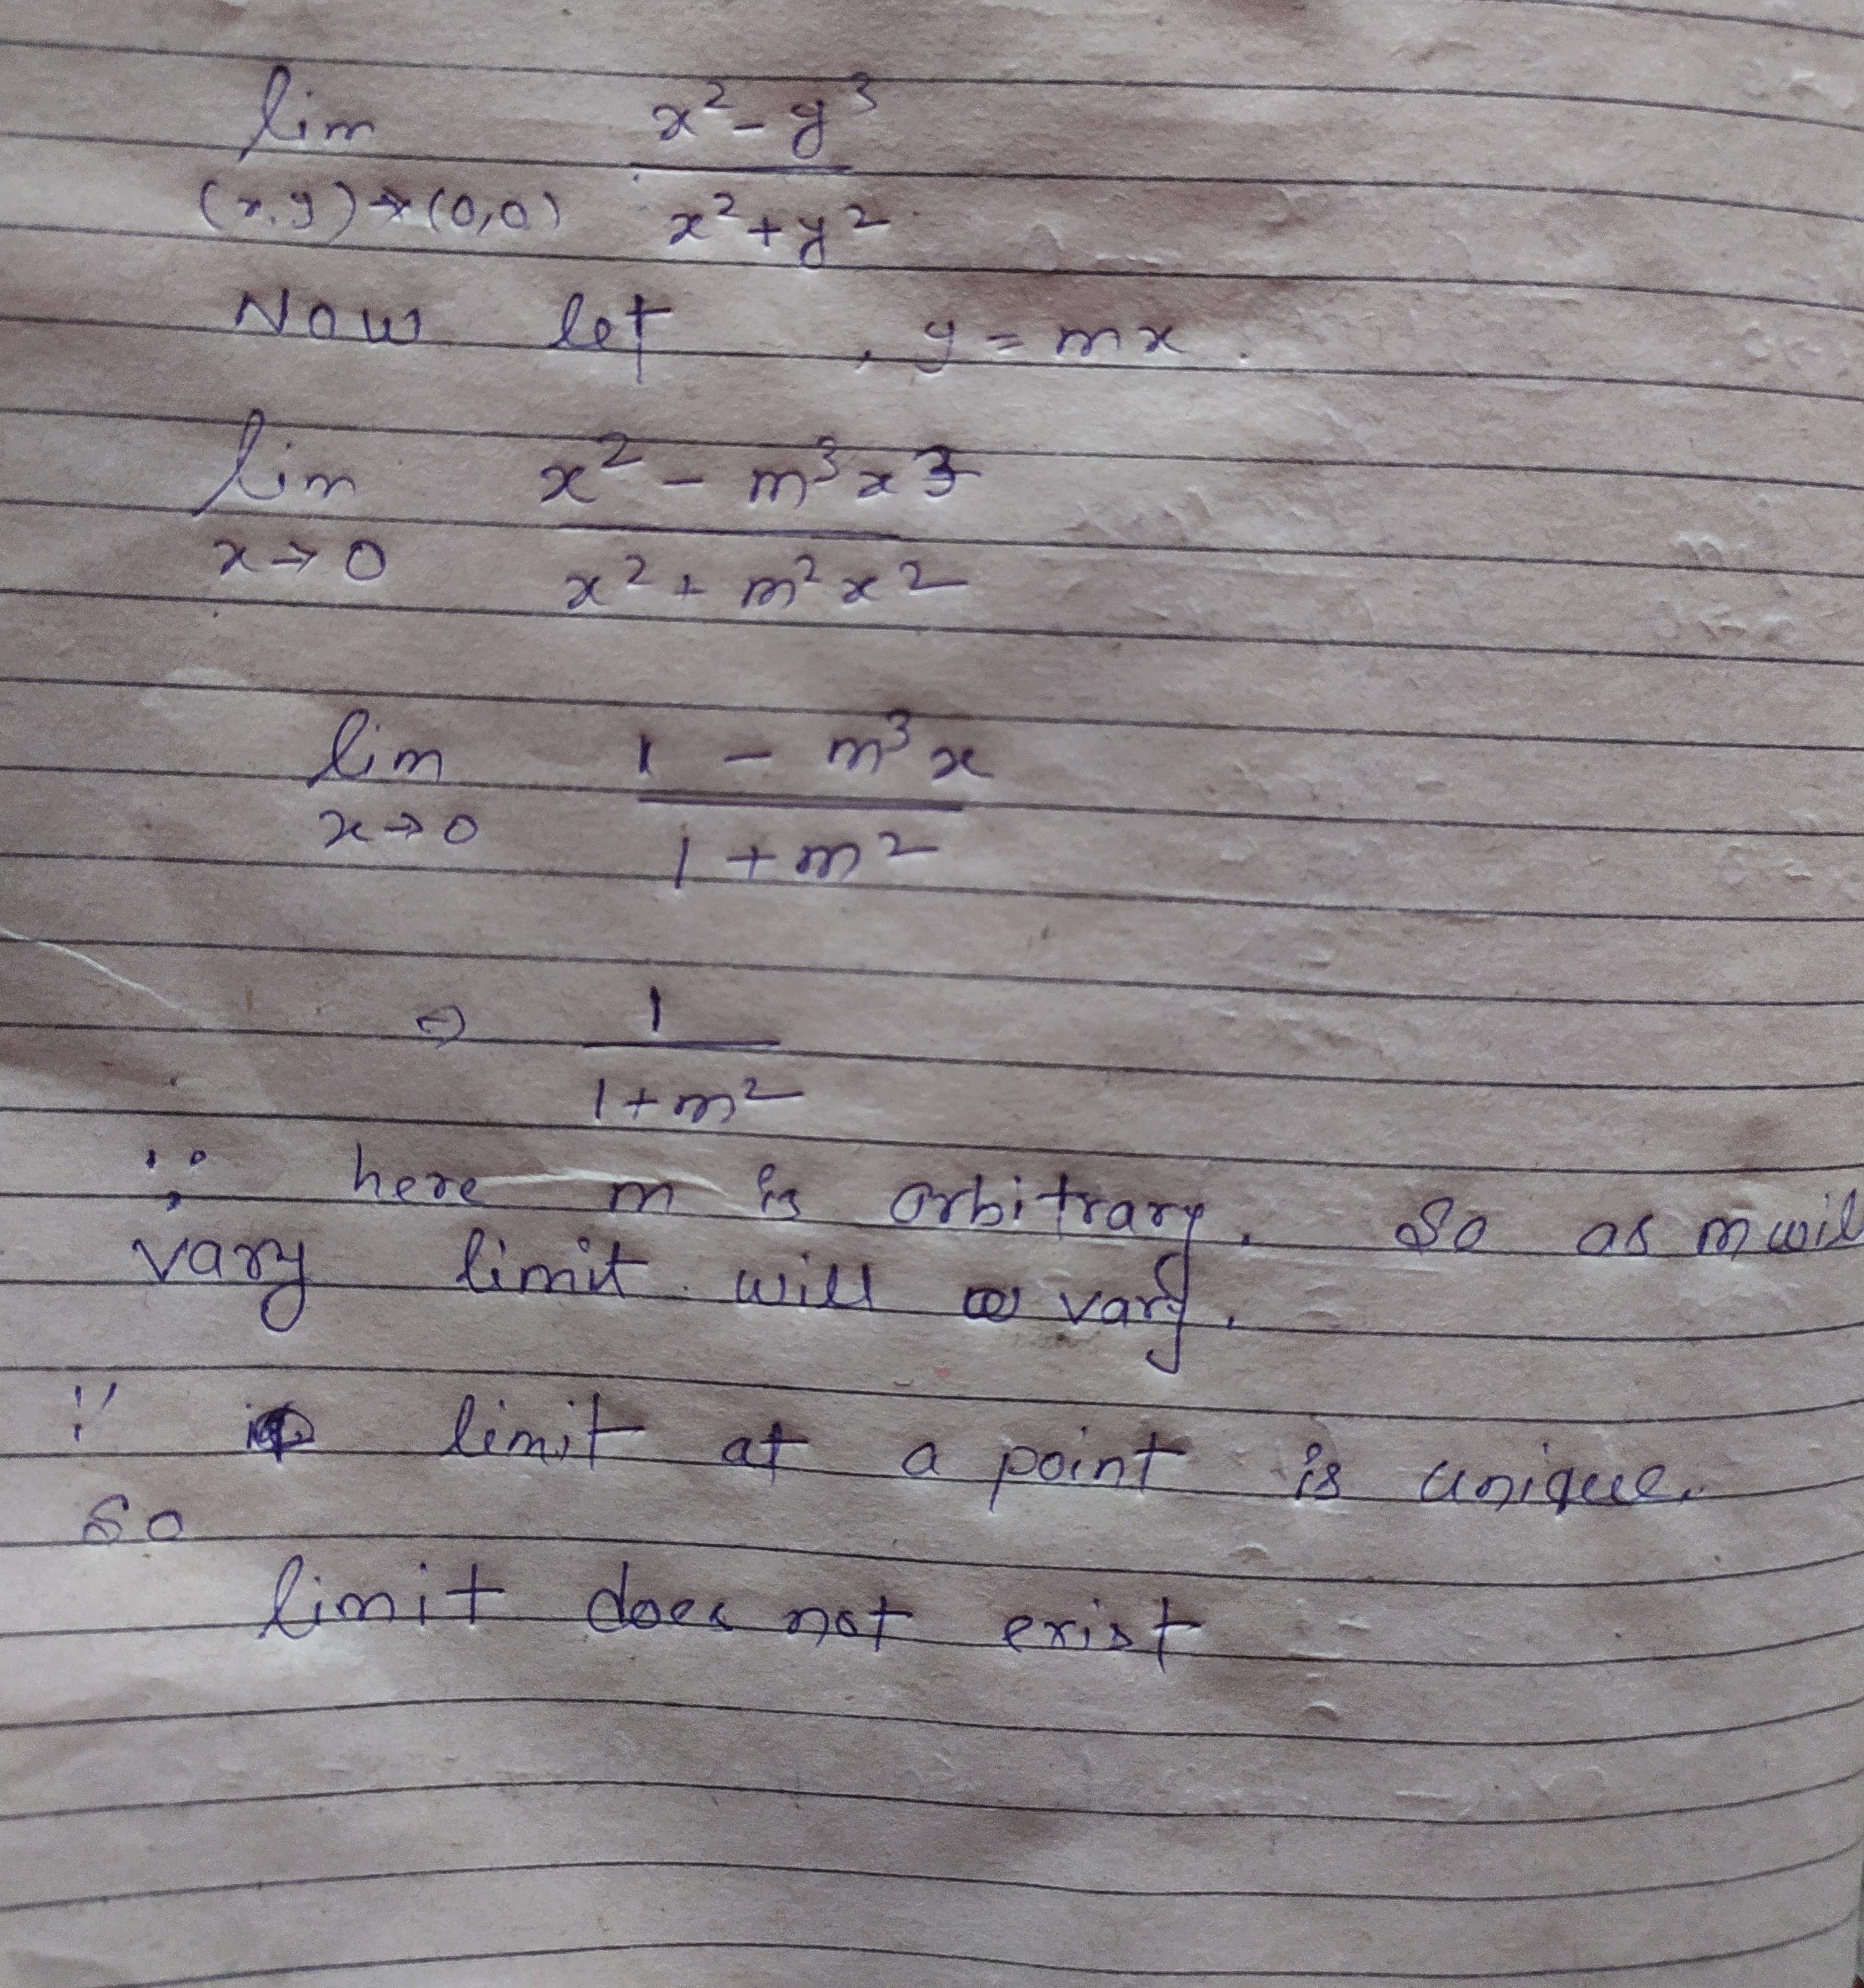 lim x² - y³
(x,y)→(0,0) x² + y²
Now let , y = mx.
lim x² - m³x³
x→0 x² + m²x²
lim 1 - m³x
x→0 1 + m²
⇒ 1
1 + m²
∵ here m is orbitrary. So as m will
vary limit will vary.
∵ limit at a point is unique.
So
limit does not exist